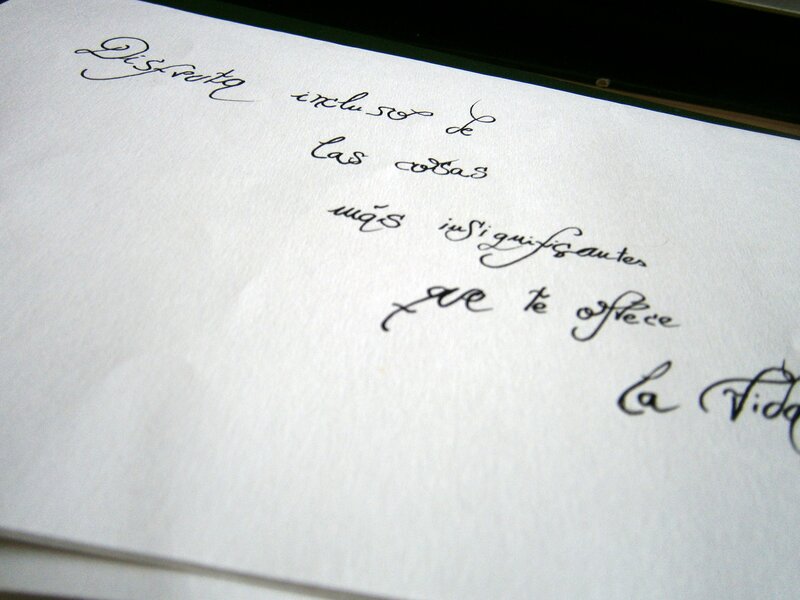 Disfruta incluso de
las cosas
más insignificantes
que te ofrece
la vida